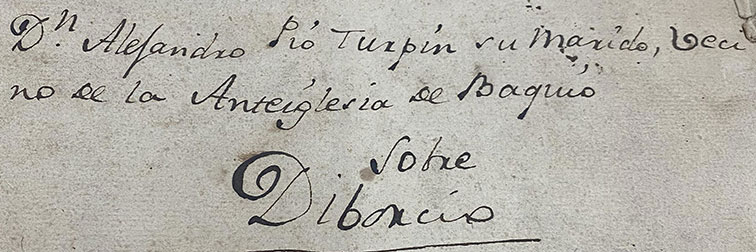 Dn Alejandro Pió Turpin su Marido, Veci
no de la Anteiglesia de Baquió
Sobre
Diborcio